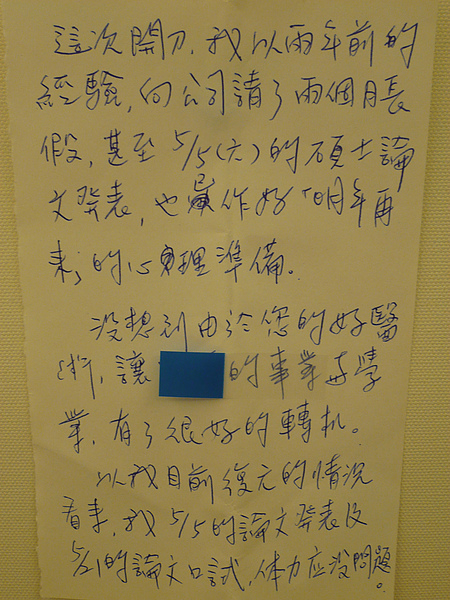 這次開刀，我以兩年前的
經驗，向公司請了兩個月長
假，甚至 5/5(六)的碩士論
文發表，也作好「明年再
來」的心理準備。
沒想到由於您的好醫
術，讓 的事業与學
業，有了很好的轉机。
以我目前復元的情況
看来，我 5/5的論文發表及
5/21的論文口試，体力应没問題。